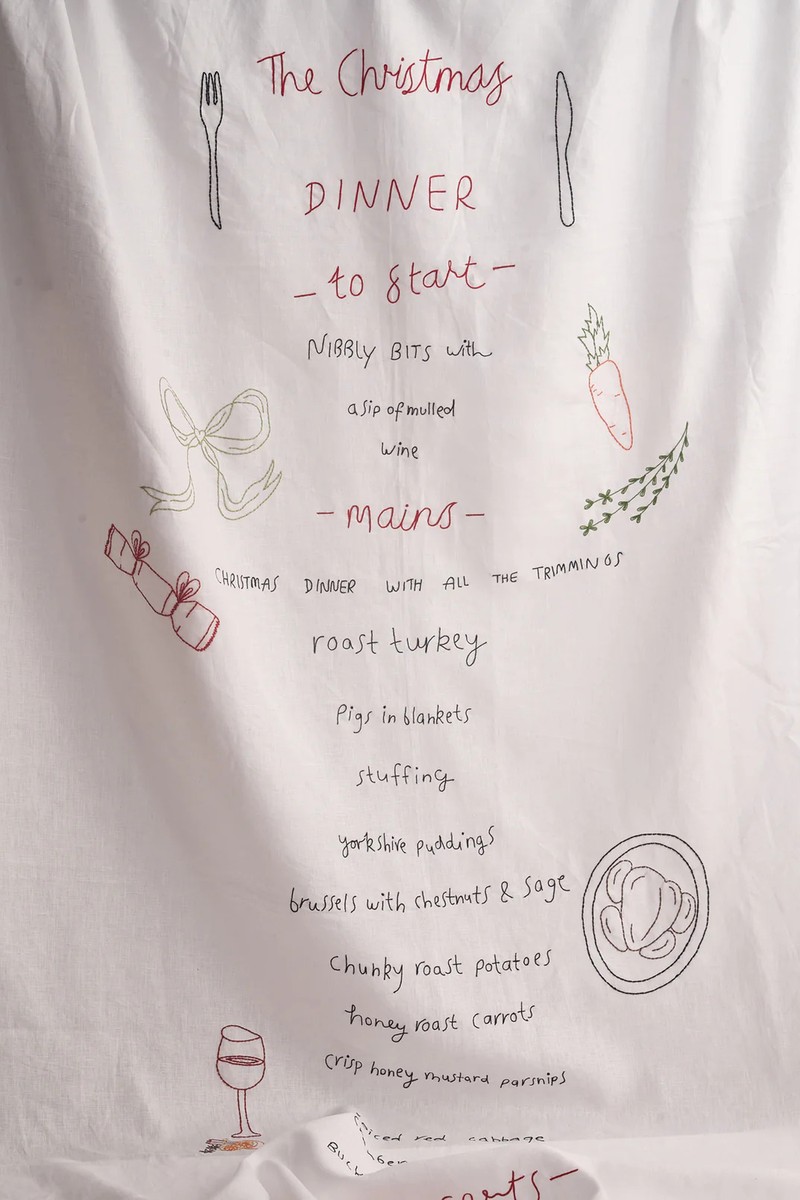 The Christmas
DINNER
- to start -
NIBBLY BITS with
a sip of mulled
wine
- mains -
CHRISTMAS DINNER WITH ALL THE TRIMMINGS
roast turkey
Pigs in blankets
stuffing
yorkshire puddings
brussels with chestnuts & sage
Chunky roast potatoes
honey roast carrots
crisp honey mustard parsnips
red cabbage